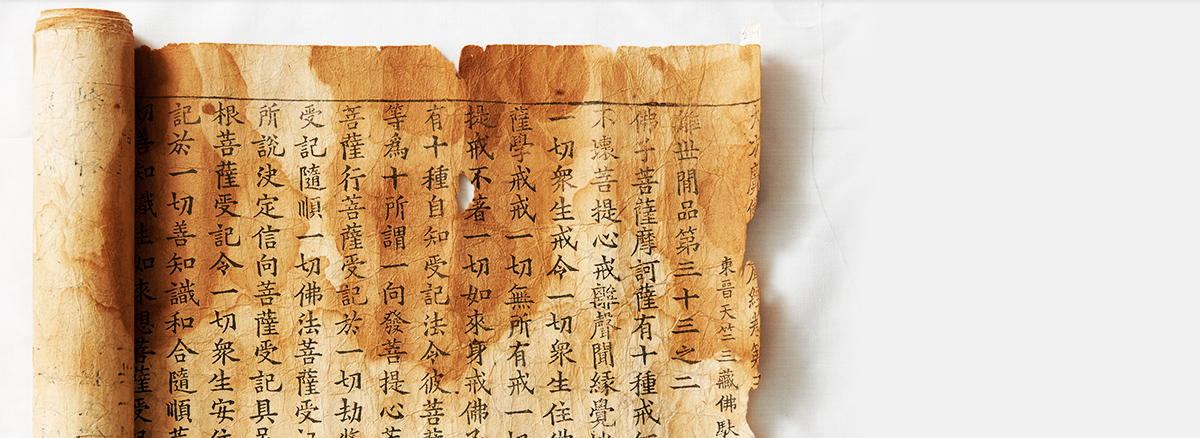 東晉天竺三藏佛馱
離世間品第三十三之二
佛子菩薩摩訶薩有十種戒
不壞菩提心戒離聲聞緣覺地
一切衆生戒令一切衆生住佛
薩學戒戒一切無所有戒一切
提戒不著一切如來身戒佛子
有十種自知受記法令彼菩薩
等為十所謂一向發菩提心菩
菩薩行菩薩受記於一切劫
受記隨順一切佛法菩薩受記
所說決定信向菩薩受記具足
根菩薩受記令一切衆生安住
記於一切善知識和合隨順菩
切善知識生如來想菩薩受